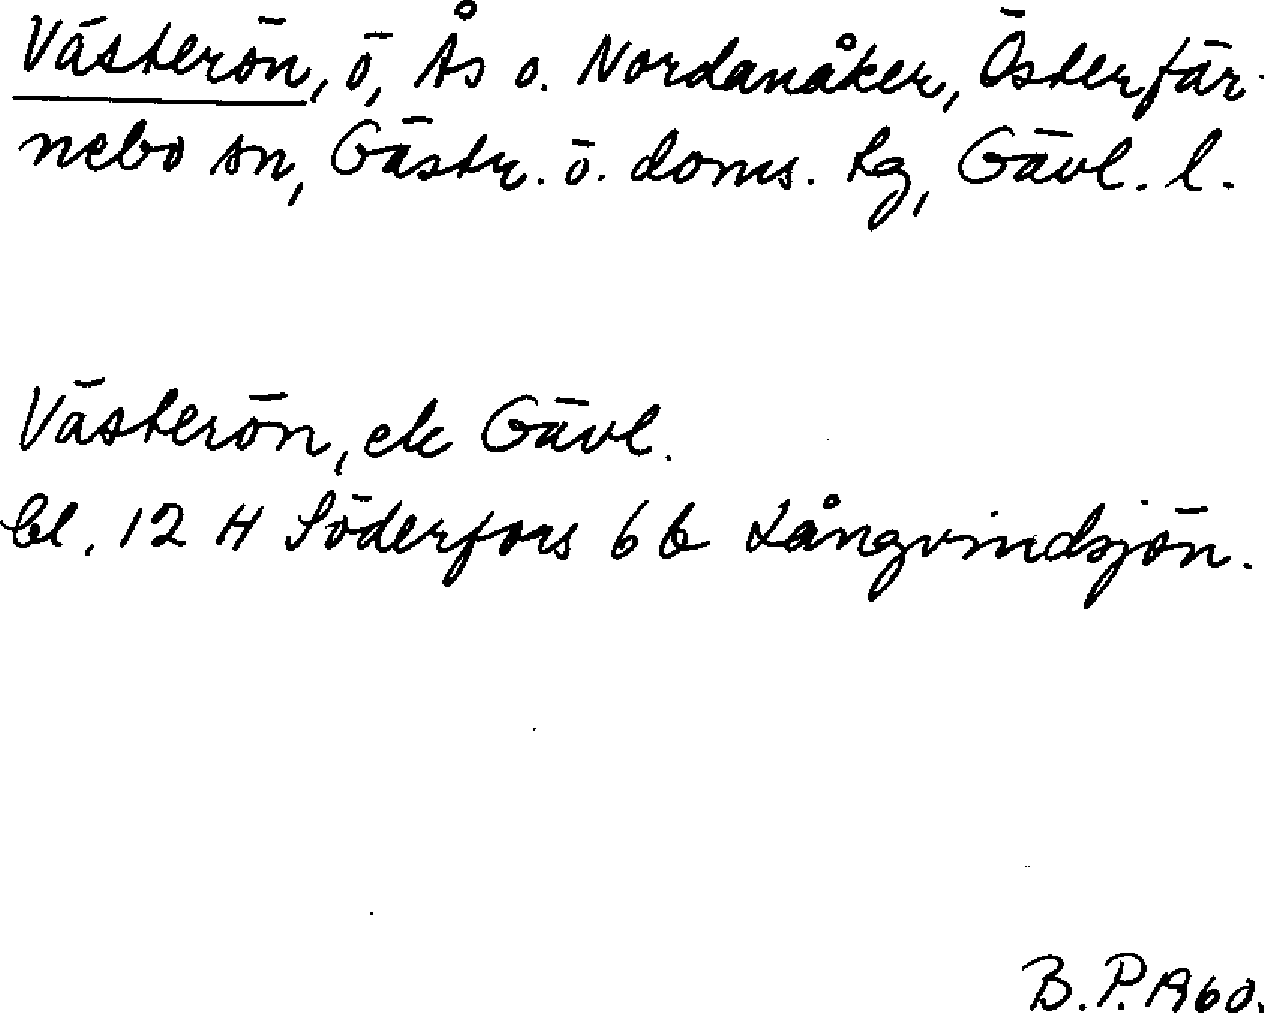 Västerön, ö, Ås o. Nordanåker, Österfär-
nebo sn, Gästr. ö. doms. tg, Gävl. l.
Västerön, ek Gävl.
bl. 12 H Söderfors 6 b Långvindsjön.
B. P. 1960.